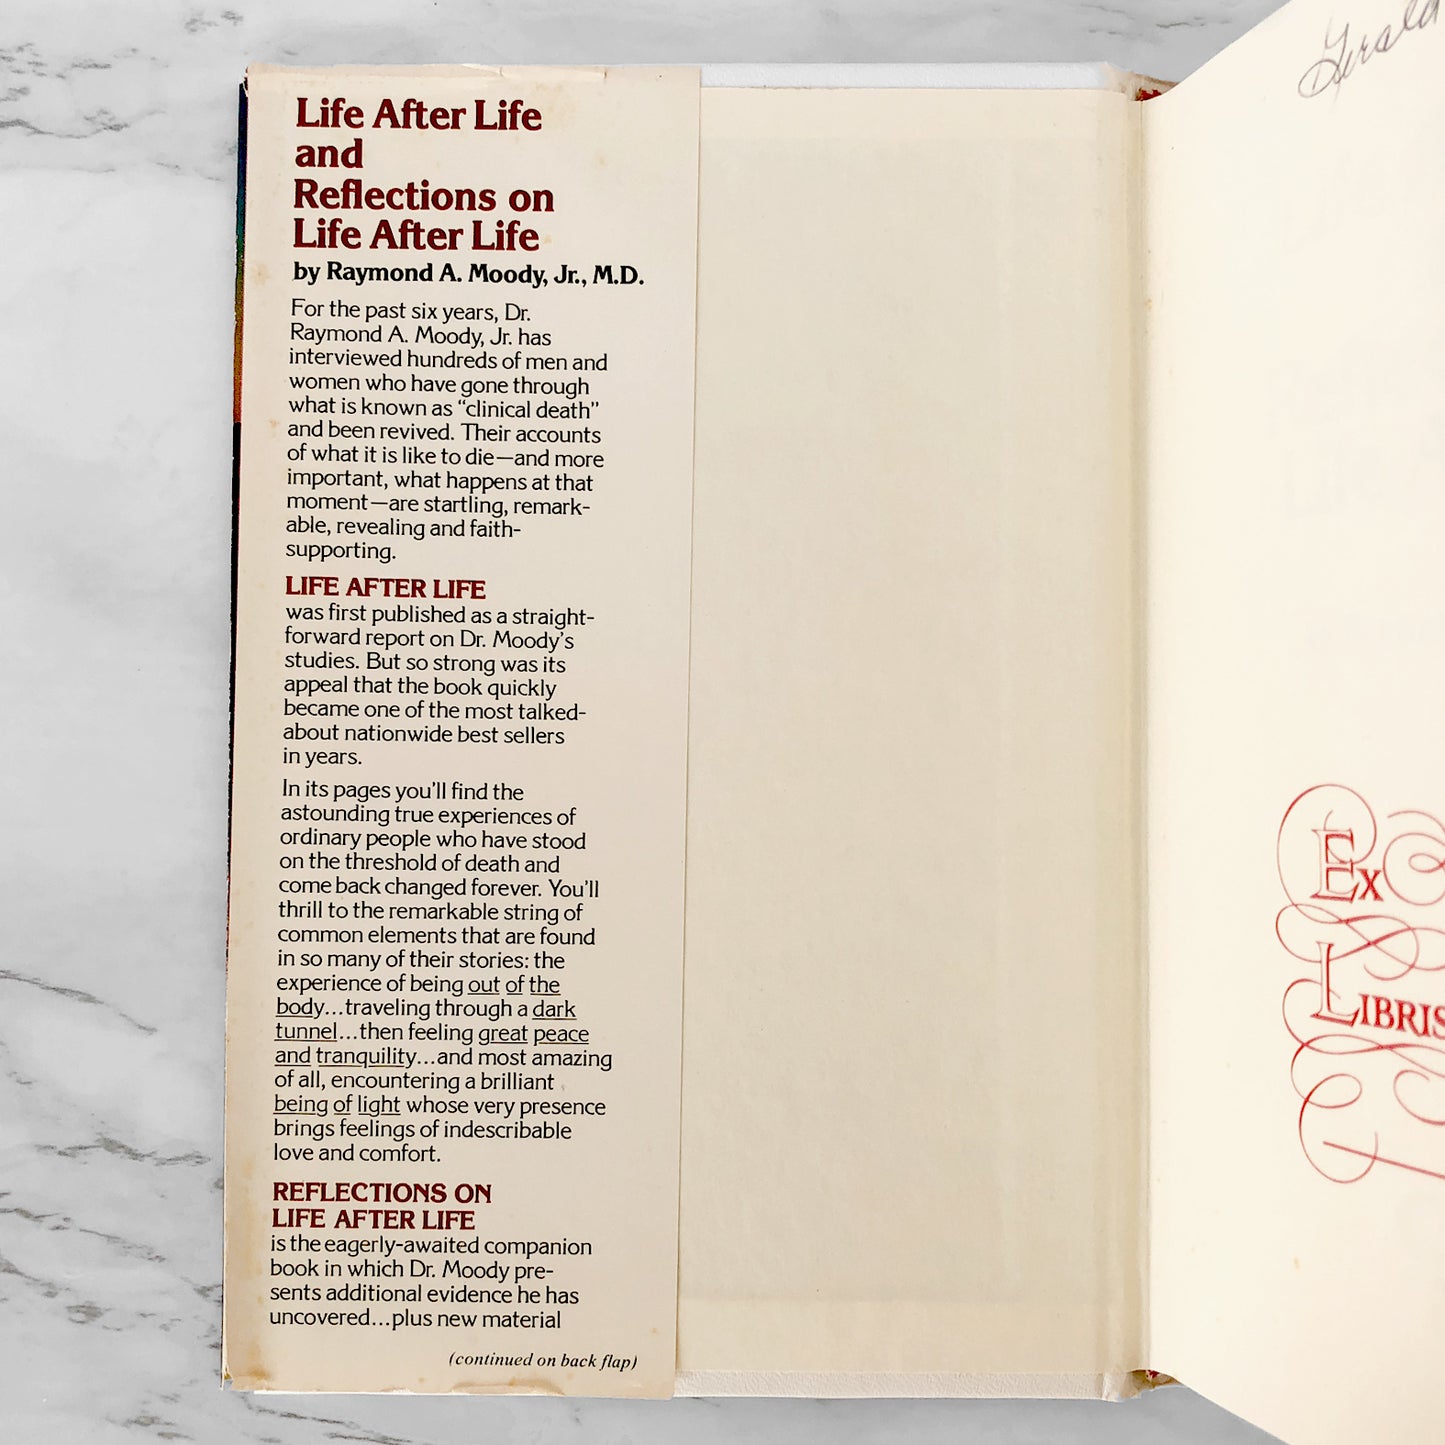 Life After Life
and
Reflections on
Life After Life
by Raymond A. Moody, Jr., M.D.
For the past six years, Dr.
Raymond A. Moody, Jr. has
interviewed hundreds of men and
women who have gone through
what is known as “clinical death”
and been revived. Their accounts
of what it is like to die—and more
important, what happens at that
moment—are startling, remark-
able, revealing and faith-
supporting.
LIFE AFTER LIFE
was first published as a straight-
forward report on Dr. Moody's
studies. But so strong was its
appeal that the book quickly
became one of the most talked-
about nationwide best sellers
in years.
In its pages you'll find the
astounding true experiences of
ordinary people who have stood
on the threshold of death and
come back changed forever. You'll
thrill to the remarkable string of
common elements that are found
in so many of their stories: the
experience of being out of the
body...traveling through a dark
tunnel...then feeling great peace
and tranquility...and most amazing
of all, encountering a brilliant
being of light whose very presence
brings feelings of indescribable
love and comfort.
REFLECTIONS ON
LIFE AFTER LIFE
is the eagerly-awaited companion
book in which Dr. Moody pre-
sents additional evidence he has
uncovered...plus new material
(continued on back flap)
Gerald
Ex
Libris